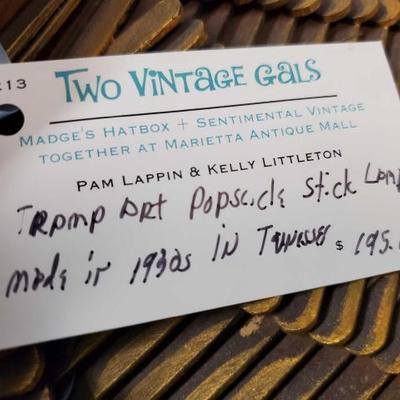 :13
TWO VINTAGE GALS
MADGE'S HATBOX + SENTIMENTAL VINTAGE
TOGETHER AT MARIETTA ANTIQUE MALL
PAM LAPPIN & KELLY LITTLETON
TRAMP ART POPSCICLE STICK LAMP
MADE IN 1930s IN TENNESSEE $ 195.